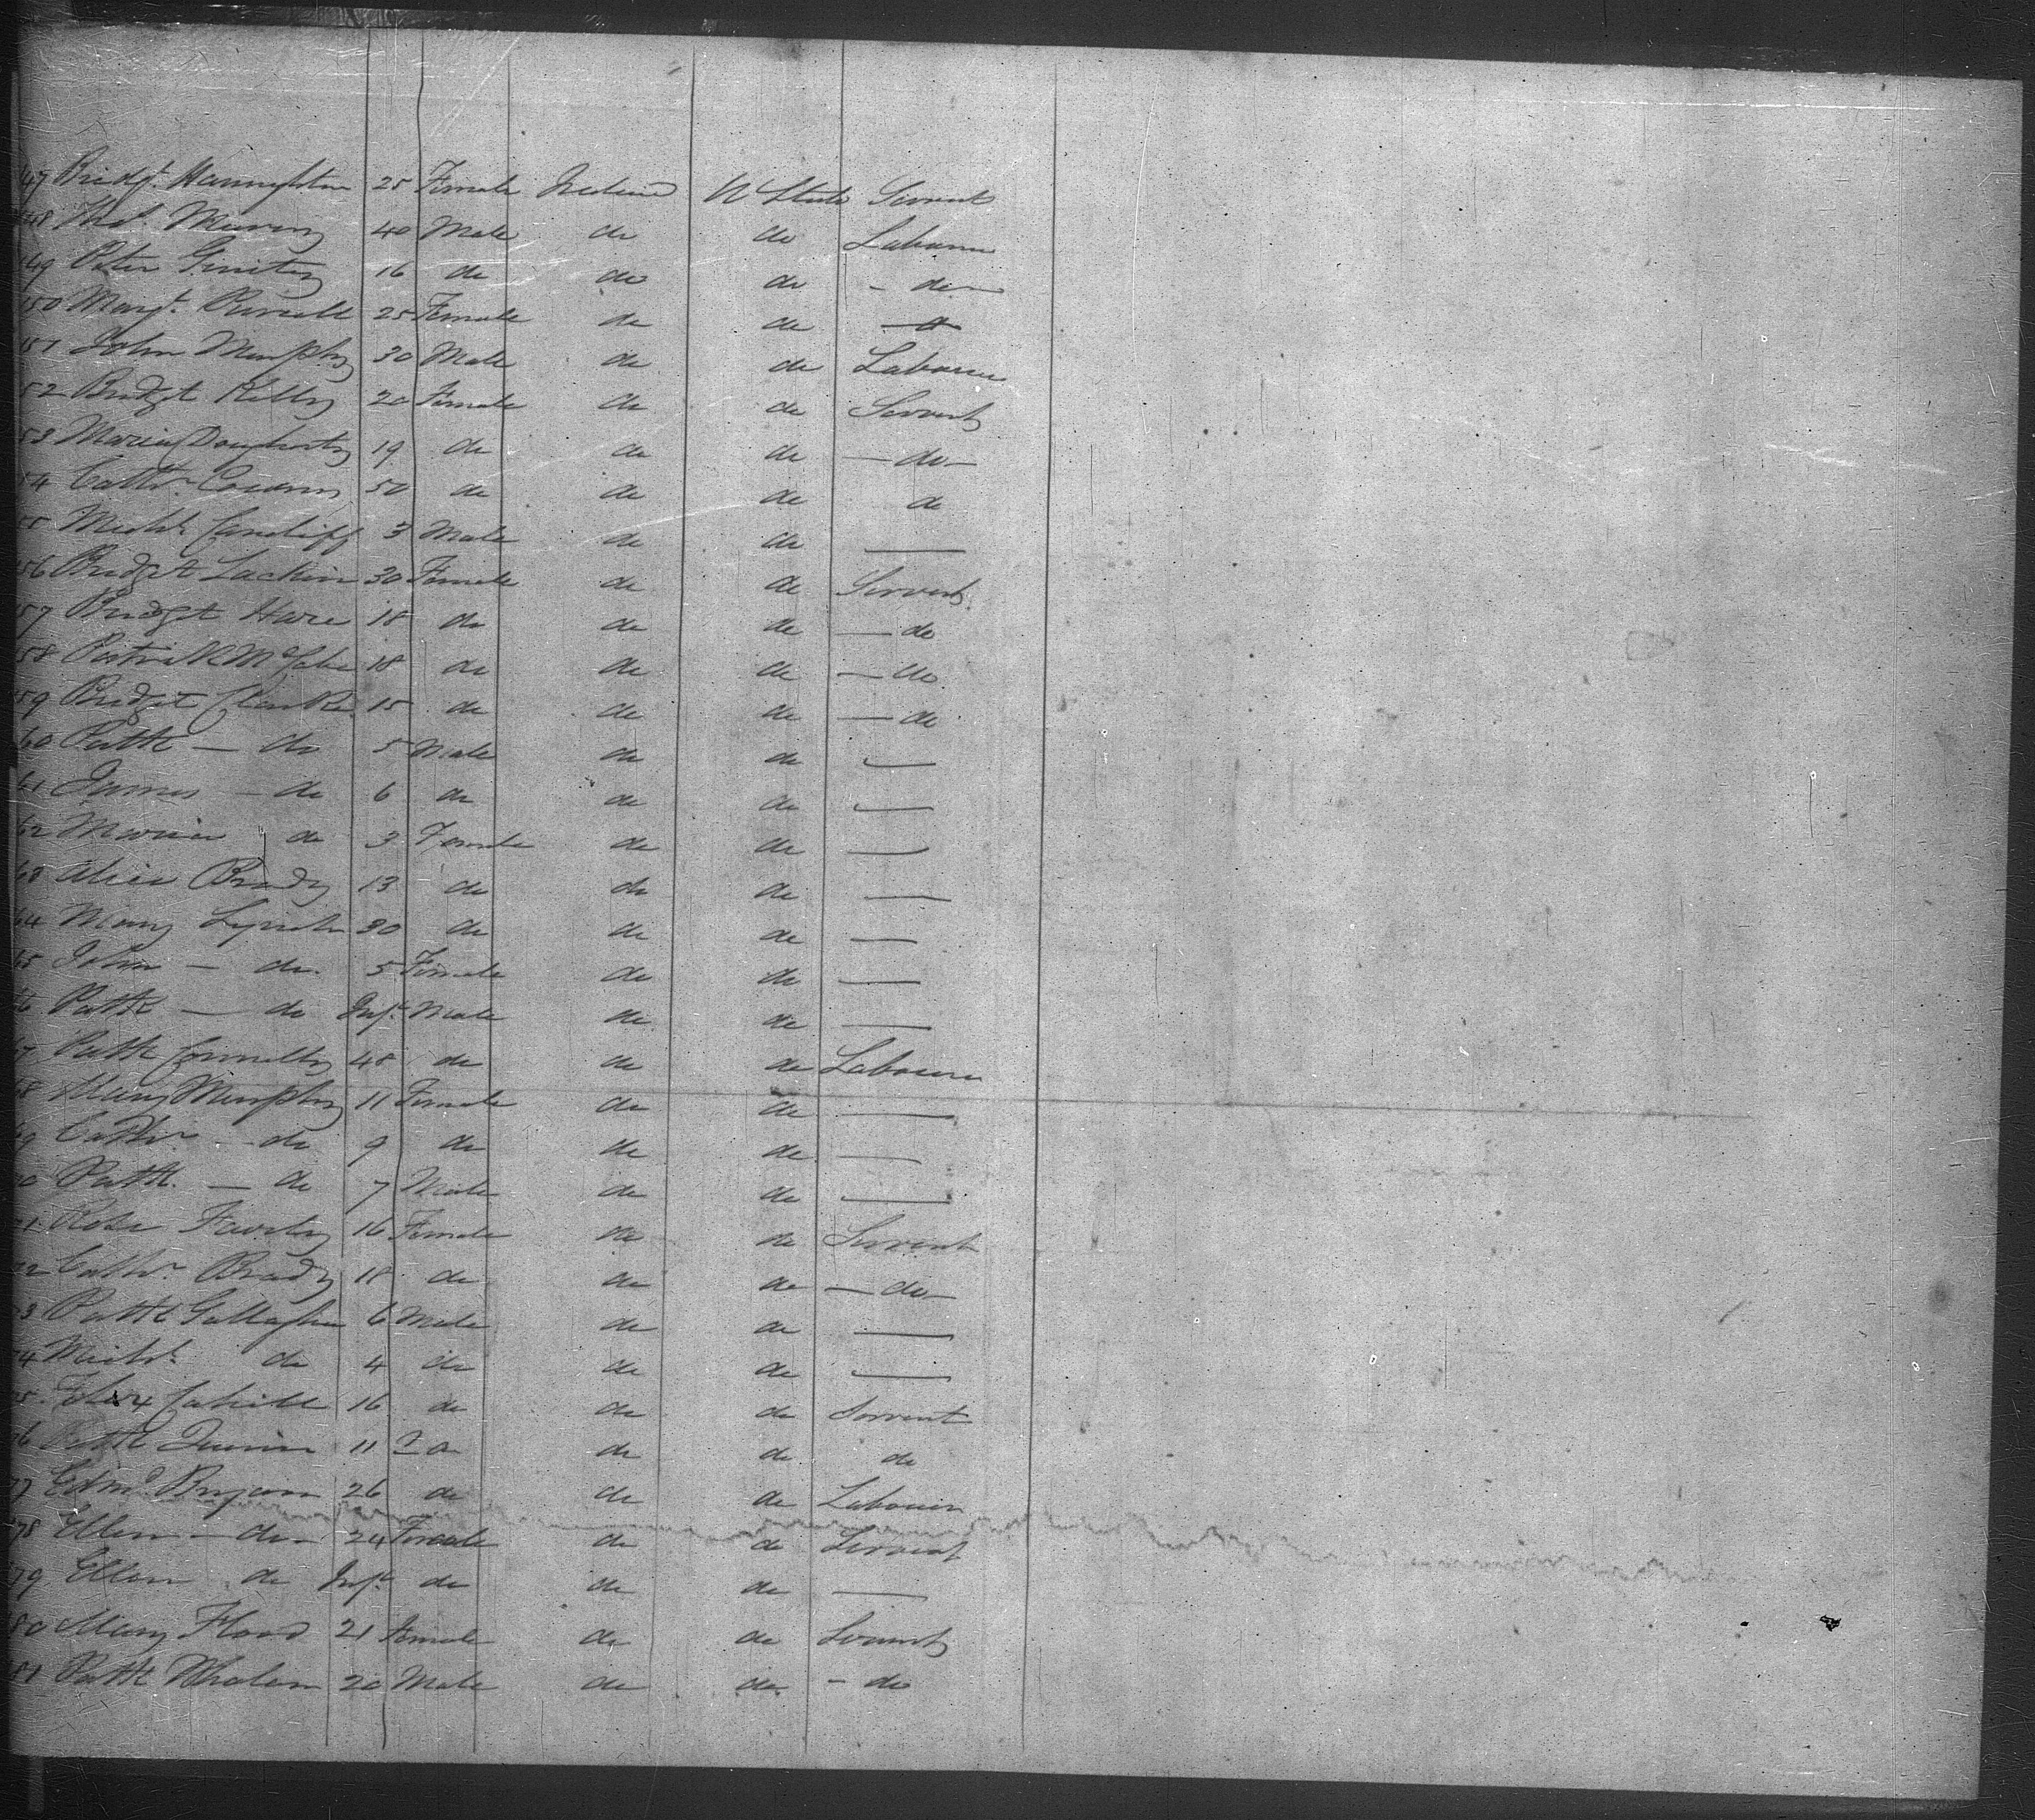 47 Bridgt. Harrington 25 Female Ireland U State Servant
148 Thos. Murray 40 Male do do Labourer
149 Peter Ginity 16 do do do - do -
150 Margt. Purcell 25 Female do do - do
151 John Murphy 30 Male do do Labourer
52 Bridget Kelly 20 Female do do Servant
53 Maria Dougherty 19 do do do - do -
54 Cathe. 50 do do do do
55 Michl. Cancliff 3 Male do do —
56 Bridget Lackin 30 Female do do Servant
57 Bridget Hare 18 do do do — do
58 Patrick McCabe 18 do do do — do
59 Bridget Clarke 15 do do do — do
60 Patk — do 5 Male do do —
61 James — do 6 do do do —
62 Maria do 3 Female do do —
63 Alice Brady 13 do do do —
64 Mary Lynch 30 do do do —
65 John — do. 5 Female do do —
66 Patk — do Inft. Male do do —
67 Patk Connelly 48 do do do Labourer
68 Mary Murphy 11 Female do do —
69 Cathe — do 9 do do do —
70 Patk. — do 7 Male do do —
71 Rose Farley 16 Female do do Servant
72 Cathe. Brady 18 do do do — do —
73 Patk Gallagher 6 Male do do —
74 Michl. do 4 do do do —
75 Felix Cahill 16 do do do Servant
76 Patk Quinn 11 do do do do
77 Edmd. Bryan 26 do do do Labourer
78 Ellen — do — 24 Female do do Servant
79 Ellen do Inft. do do do —
80 Mary Flood 21 Female do do Servant
81 Patk Whalen 20 Male do do - do